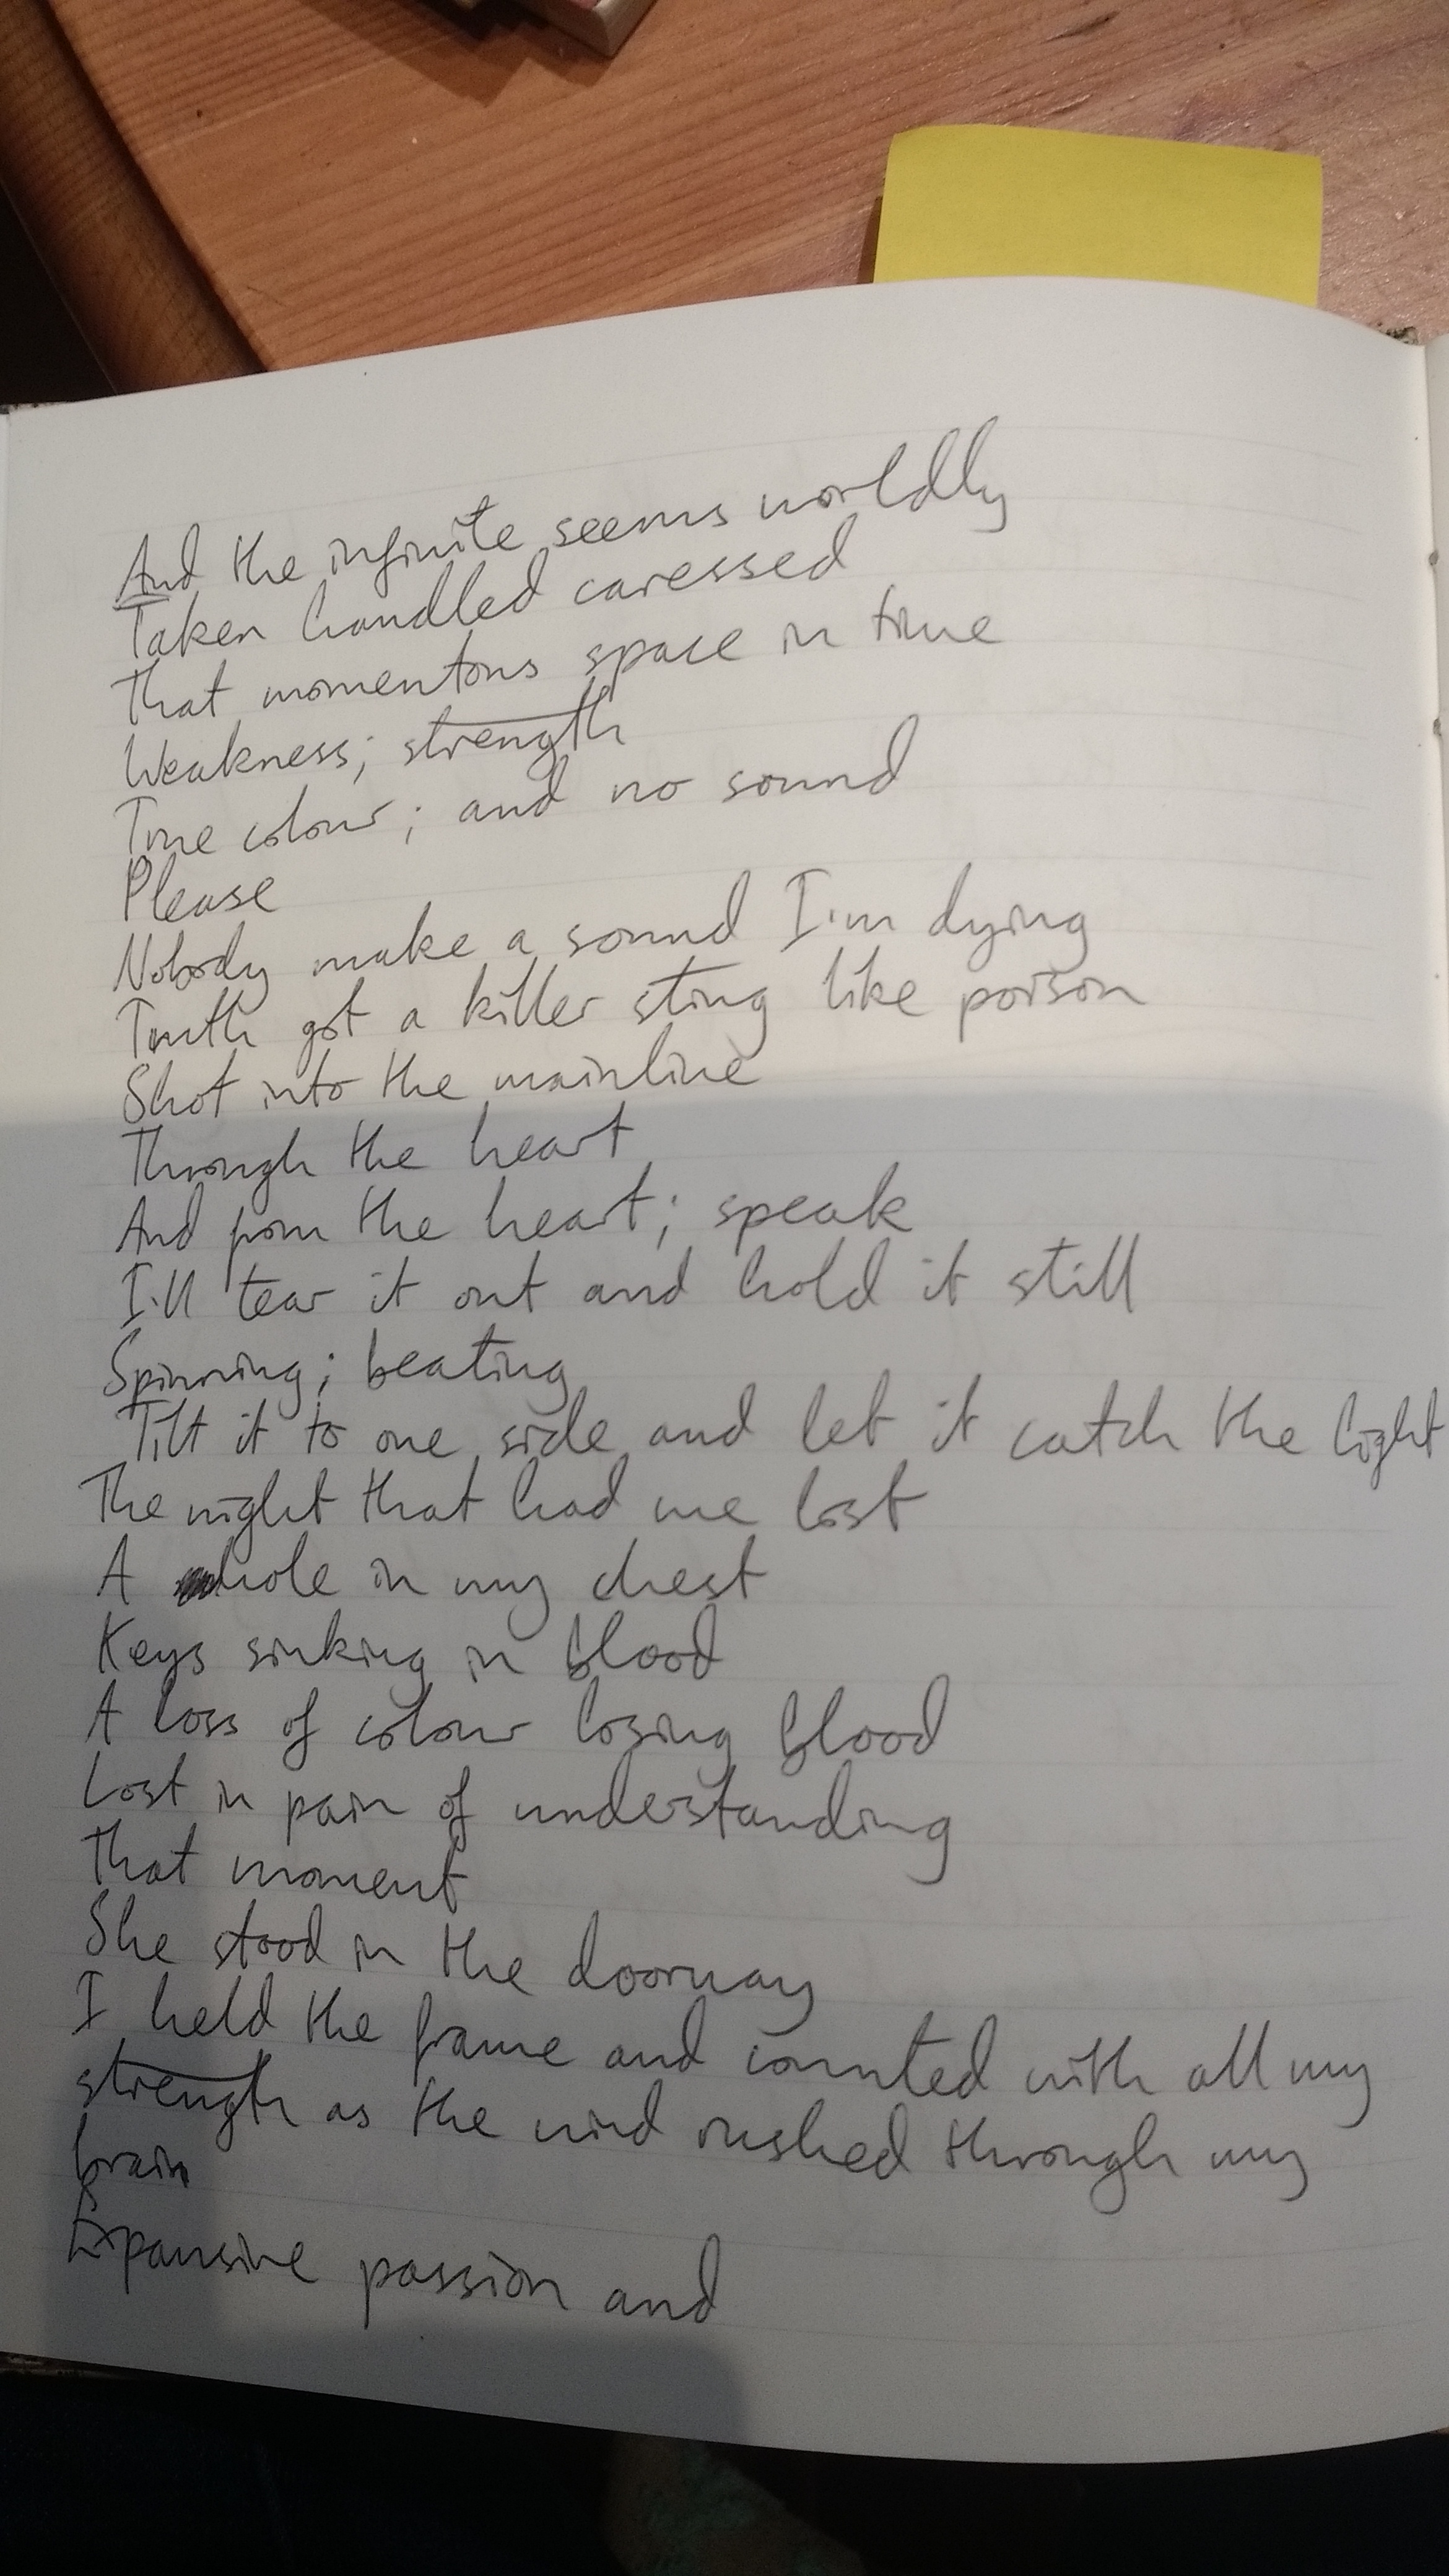 And the infinite seems worldly
Taken handled caressed
That momentous space in time
Weakness; strength
True colour; and no sound
Please
Nobody make a sound I'm dying
Truth got a killer sting like poison
Shot into the mainline
Through the heart
And from the heart; speak
I'll tear it out and hold it still
Spinning; beating
Tilt it to one side and let it catch the light
The night that had me lost
A hole in my chest
Keys sinking in blood
A loss of colour losing blood
Lost in pain of understanding
That moment
She stood in the doorway
I held the frame and counted with all my
strength as the wind rushed through my
brain
Expansive passion and